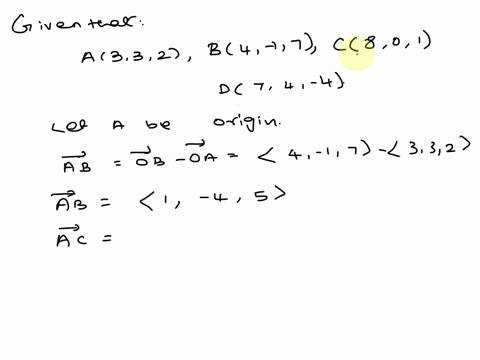 Given that:
A(3,3,2), B(4,-1,7), C(8,0,1)
D(7,4,-4)
Let A be origin.
→AB = →OB - →OA = < 4,-1,7> - < 3,3,2>
→AB = < 1, -4, 5>
→AC =